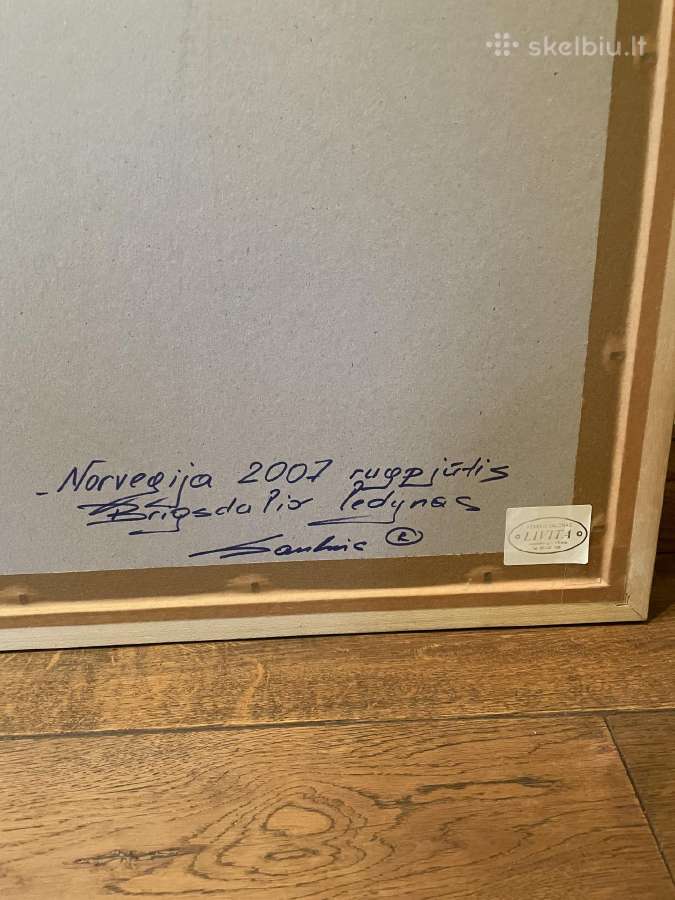 skelbiu.lt
Norvegija 2007 rugpjūtis
Brigsdalio ledynas
®
LIVITA